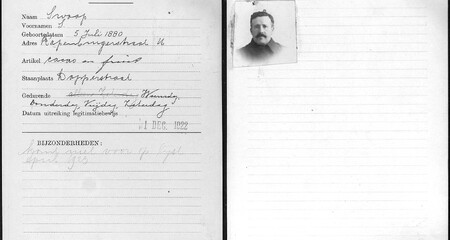 Naam Swaap
Voornamen J
Geboortedatum 5 Juli 1880
Adres Rapenburgerstraat 16
Artikel cacao en fruit
Staanplaats Dapperstraat
Gedurende Woensdag,
Donderdag, Vrijdag, Zaterdag
Datum uitreiking legitimatiebewijs
1 DEC. 1922
BIJZONDERHEDEN:
komt niet voor op lijst
april 1923